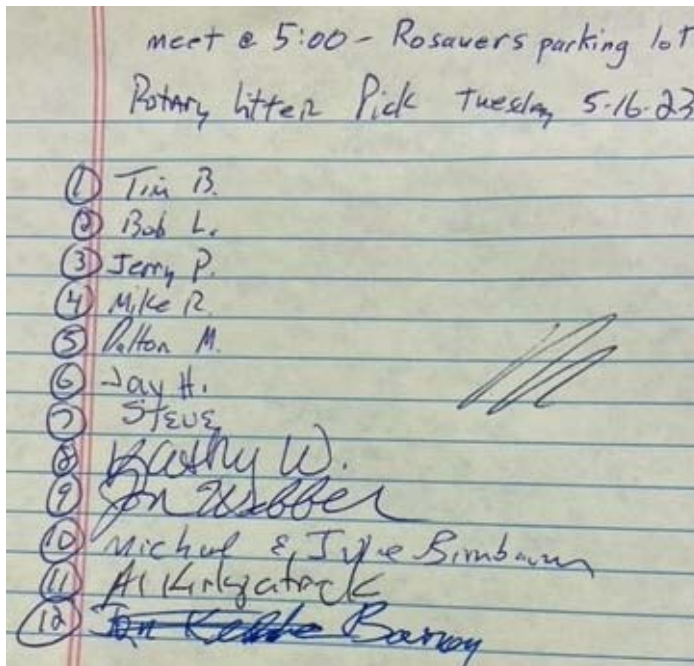 meet @ 5:00 - Rosauers parking lot
Rotary litter Pick Tuesday 5-16-23
① Tim B.
② Bob L.
③ Jerry P.
④ Mike R.
⑤ Dalton M.
⑥ Jay H.
⑦ Steve
⑧ Kathy W.
⑨ Jon Webber
⑩ Michael & Birnbaum
⑪ Al Kirkpatrick
⑫